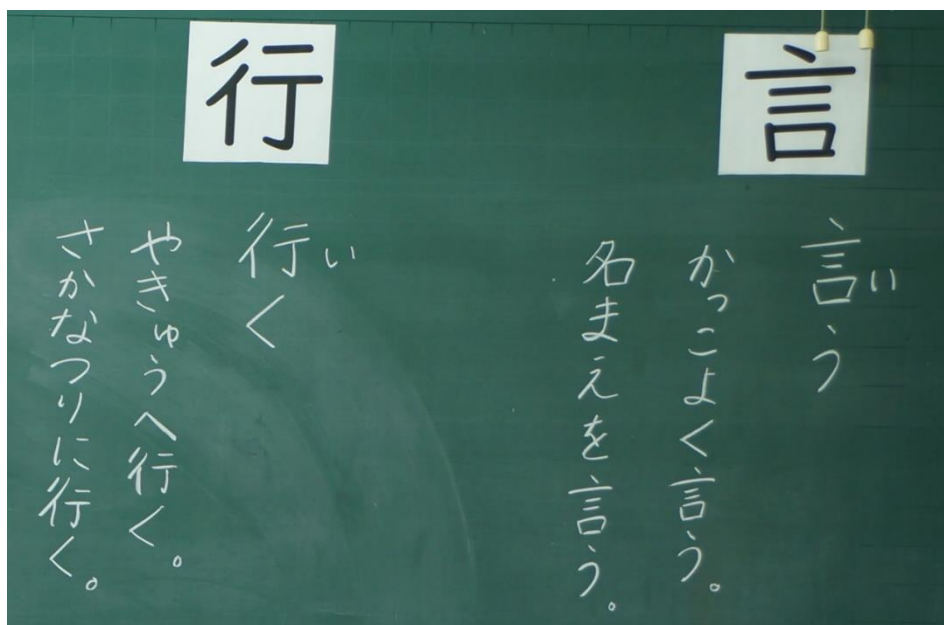 言
言う
い
かっこよく言う。
名まえを言う。
行
行く
い
やきゅうへ行く。
さかなつりに行く。